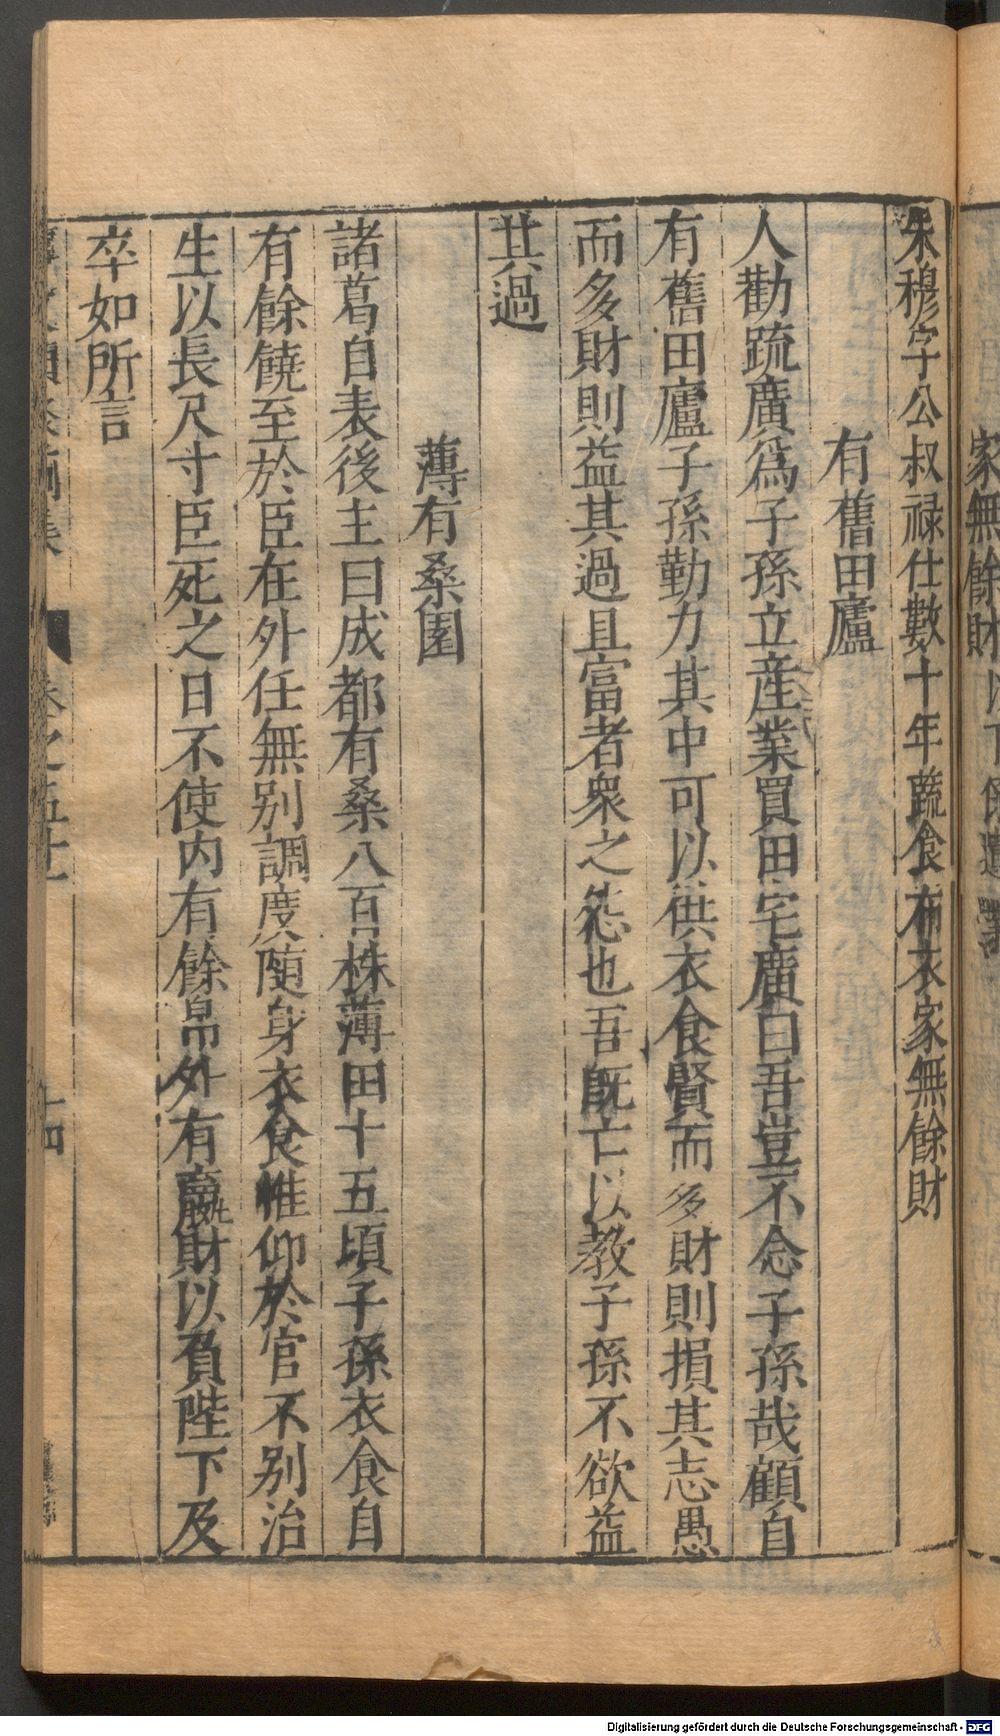 家無餘財
朱穆字公叔禄仕數十年蔬食布衣家無餘財
有舊田廬
人勸疏廣爲子孫立産業買田宅廣曰吾豈不念子孫哉顧自
有舊田廬子孫勤力其中可以供衣食賢而多財則損其志愚
而多財則益其過且富者衆之怨也吾旣亡以教子孫不欲益
其過
薄有桑園
諸葛自表後主曰成都有桑八百株薄田十五頃子孫衣食自
有餘饒至於臣在外任無别調度随身衣食惟仰於官不别治
生以長尺寸臣死之日不使内有餘帛外有贏財以負陛下及
卒如所言
卷之五十
十四
Digitalisierung gefördert durch die Deutsche Forschungsgemeinschaft - DFG